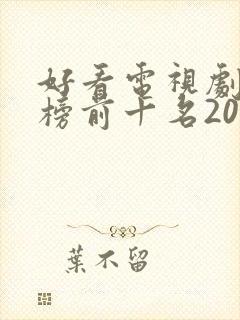 好看電視劇
榜前十名20
葉不留